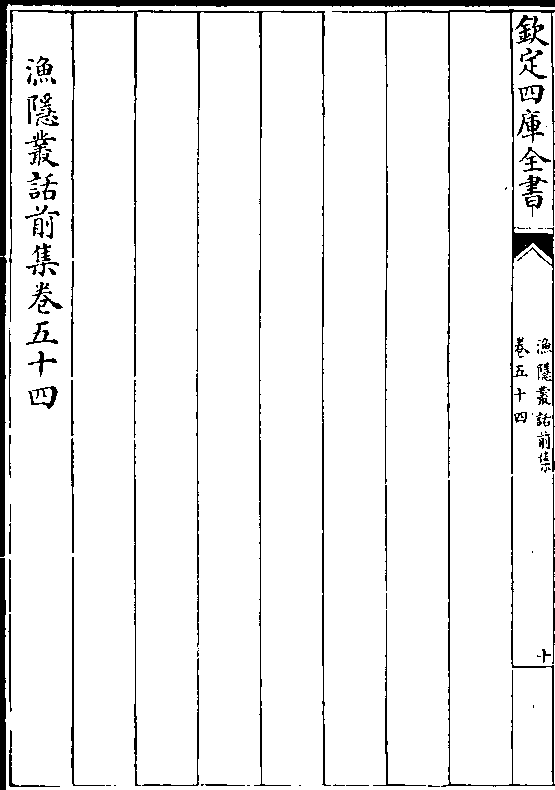 欽定四庫全書
漁隱叢話前集
卷五十四
十
漁隱叢話前集卷五十四